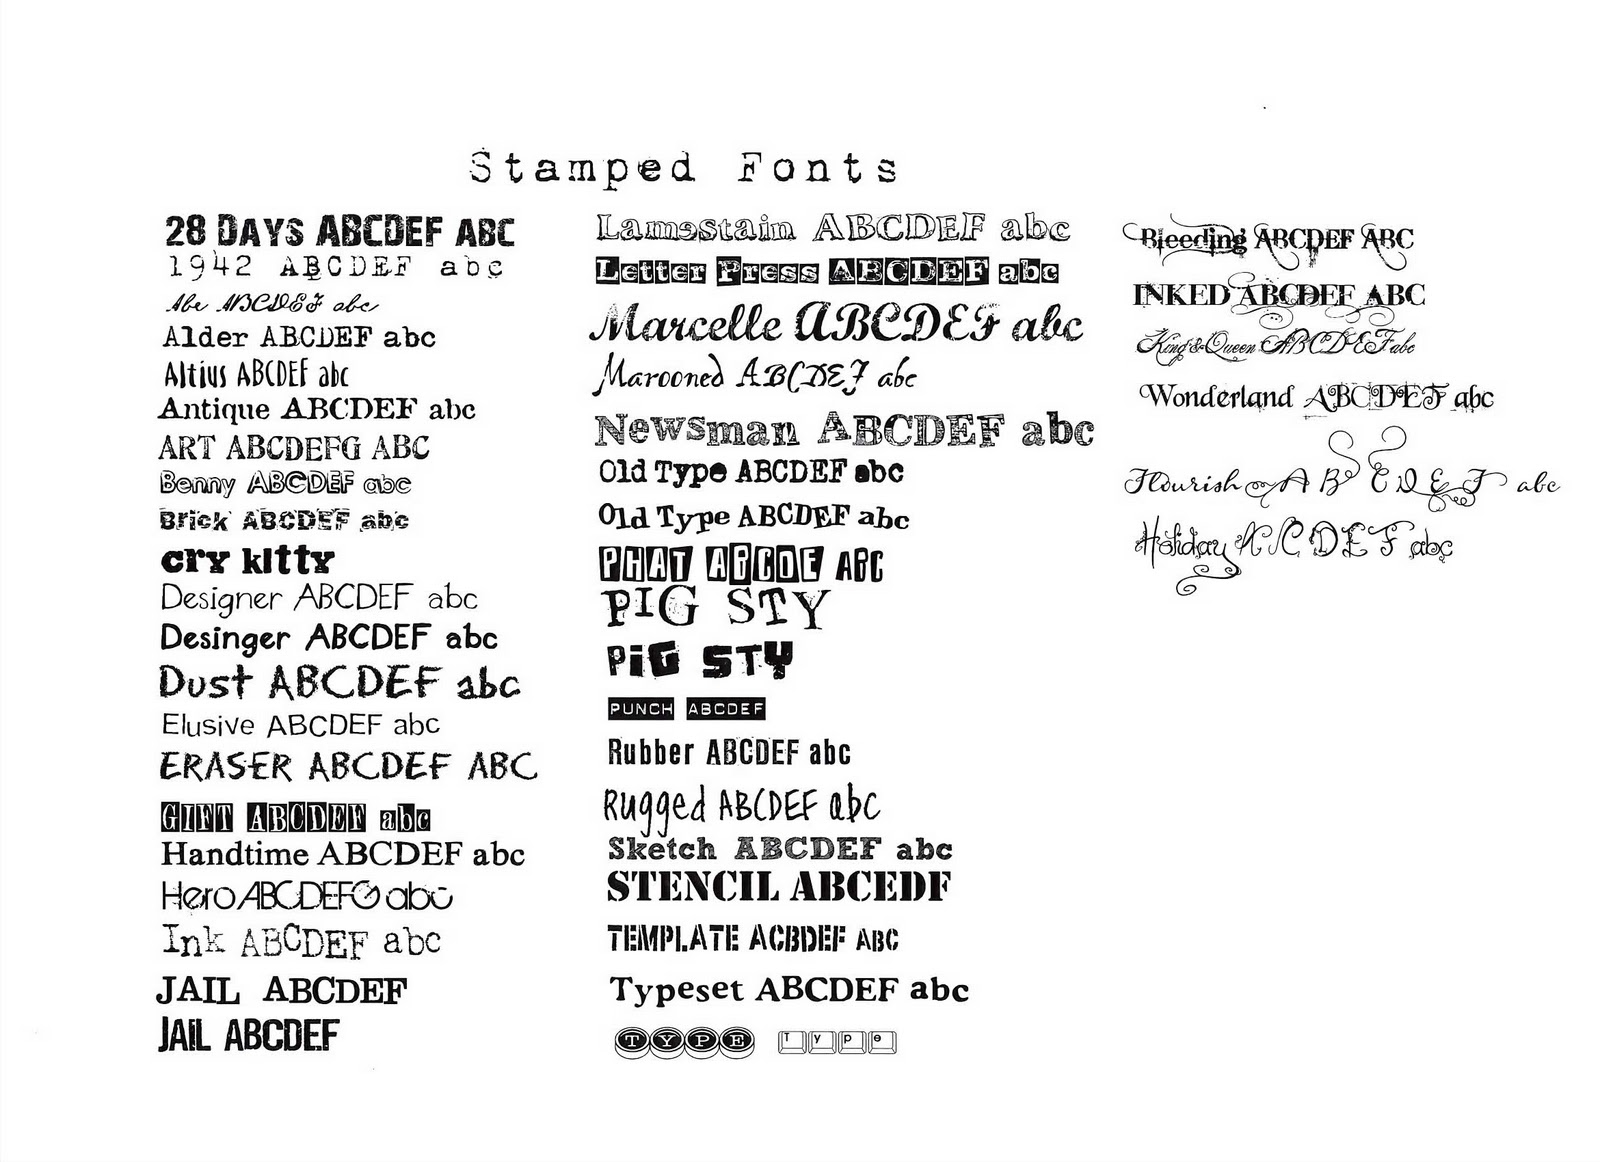 Stamped Fonts
28 DAYS ABCDEF ABC
1942 ABCDEF abc
Abe ABCDEF abc
Alder ABCDEF abc
Altius ABCDEF abc
Antique ABCDEF abc
ART ABCDEFG ABC
Benny ABCDEF abc
Brick ABCDEF abc
cry kitty
Designer ABCDEF abc
Desinger ABCDEF abc
Dust ABCDEF abc
Elusive ABCDEF abc
ERASER ABCDEF ABC
GIFT ABCDEF abc
Handtime ABCDEF abc
Hero ABCDEFG abc
Ink ABCDEF abc
JAIL ABCDEF
JAIL ABCDEF
Lamestain ABCDEF abc
Letter Press ABCDEF abc
Marcelle ABCDEF abc
Marooned ABCDEF abc
Newsman ABCDEF abc
Old Type ABCDEF abc
Old Type ABCDEF abc
PHAT ABCDE ABC
PIG STY
PiG STY
PUNCH ABCDEF
Rubber ABCDEF abc
Rugged ABCDEF abc
Sketch ABCDEF abc
STENCIL ABCEDF
TEMPLATE ACBDEF ABC
Typeset ABCDEF abc
TYPE Type
Bleeding ABCDEF ABC
INKED ABCDEF ABC
King & Queen ABCDEF abc
Wonderland ABCDEF abc
Flourish A B C D E F abc
Holiday A C D E F abc